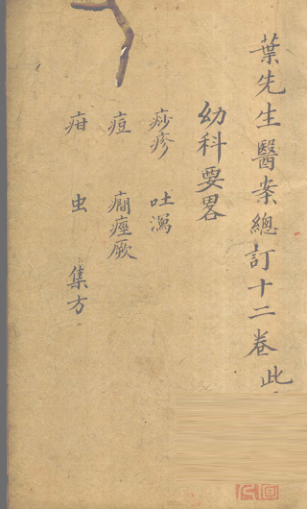 葉先生醫案總訂十二卷此
幼科要畧
痧疹 吐瀉
痘 癇痙厥
疳 虫 集方